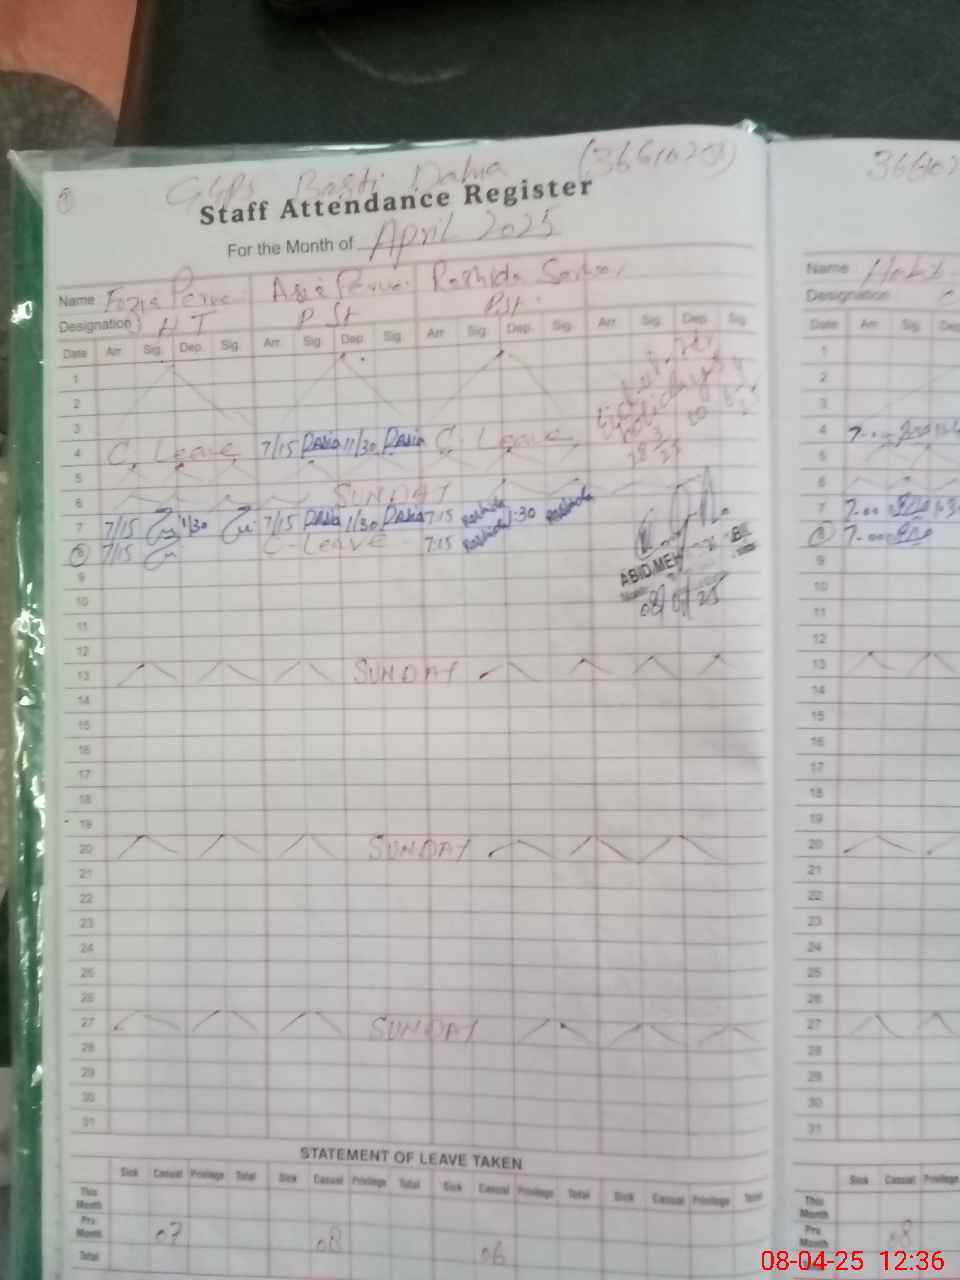 GGPS Basti Dahra (36610201)
Staff Attendance Register
For the Month of April 2025
Name Fozia Perve Asia Perve Rashida Sardar
Designation HT PST PST
Date Arr. Sig. Dep. Sig. Arr. Sig. Dep. Sig. Arr. Sig. Dep. Sig. Arr. Sig. Dep. Sig.
1
2
3
4 C. Leave 7/15 Rasia 11/30 Rasia C. Leave
5
6 SUNDAY
7 7/15 1/30 7/15 Rasia 1/30 Rasia 7:15 Rashida 1:30 Rashida
8 7/15 C-Leave 7:15 Rashida
9
10
11
12
13 SUNDAY
14
15
16
17
18
19
20 SUNDAY
21
22
23
24
25
26
27 SUNDAY
28
29
30
31
holidays
28 3/25
to
ABID MEH
08/04/25
STATEMENT OF LEAVE TAKEN
Sick Casual Privilege Total Sick Casual Privilege Total Sick Casual Privilege Total Sick Casual Privilege Total
This Month
Prv Month 07 08 06
Total
36610
Name
Designation
Date Arr. Sig. Dep
1
2
3
4 7-00
5
6
7 7-00
8 7-00
9
10
11
12
13
14
15
16
17
18
19
20
21
22
23
24
25
26
27
28
29
30
31
Sick Casual Privilege
This Month
Prv Month 08
Total
08-04-25 12:36